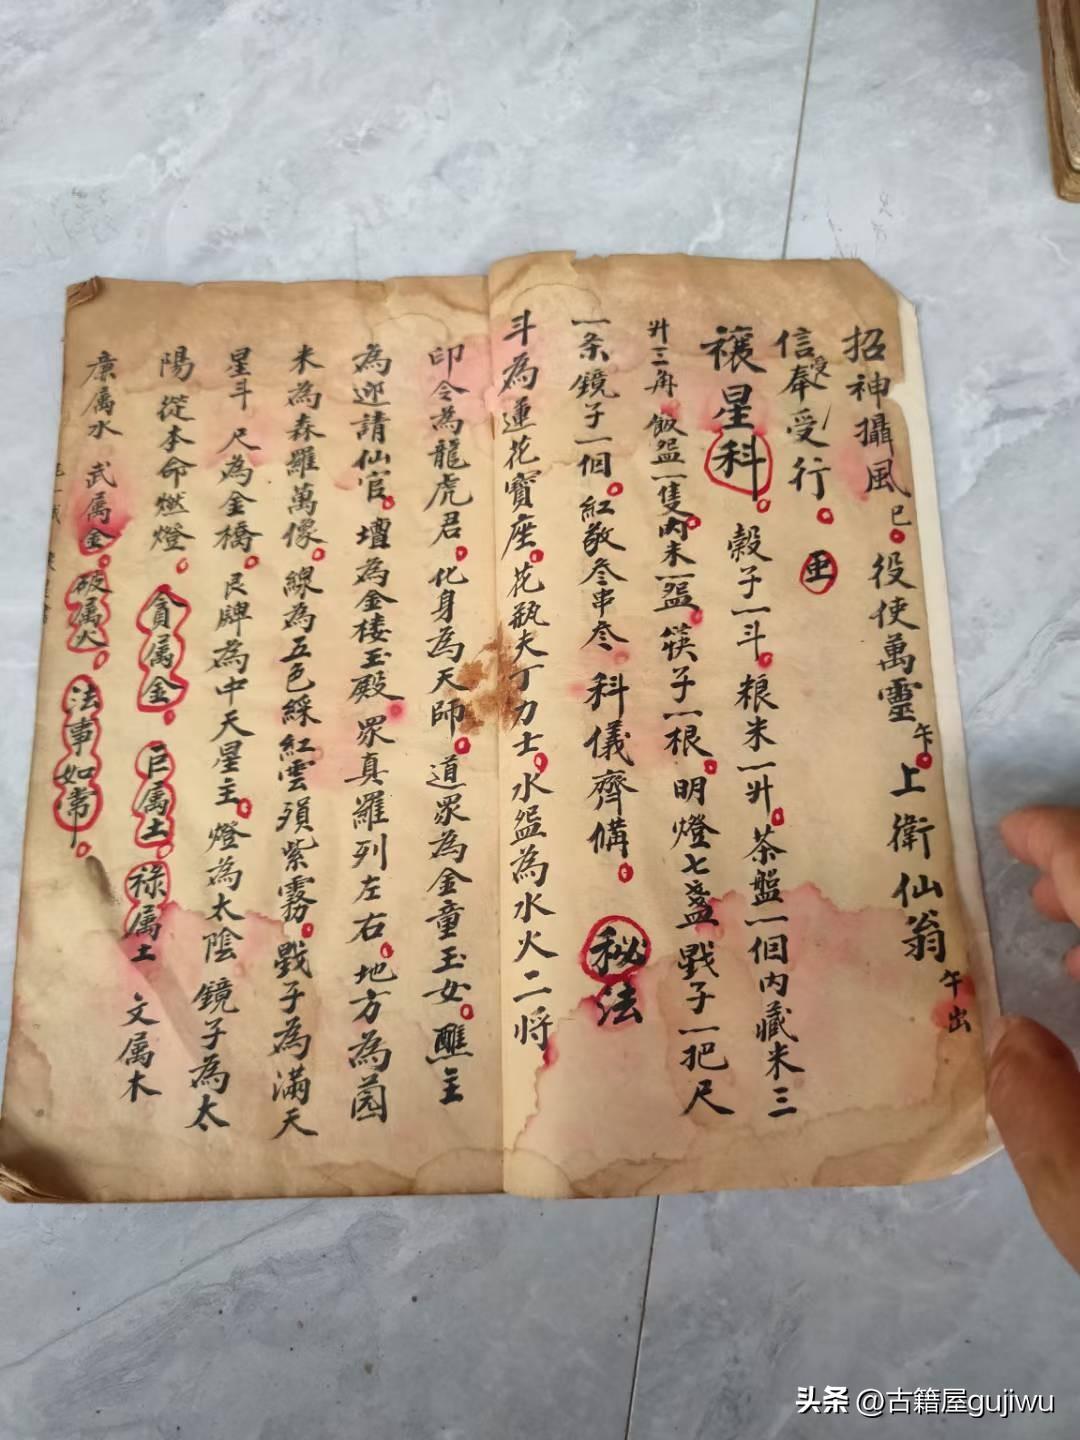 招神攝風巳役使萬靈午上衛仙翁午出
信受奉受行
禳星科穀子一斗粮米一升茶盤一個内藏米三
升三角飯盌一隻内米一盌筷子一根明燈七盞戥子一把尺
一条鏡子一個紅敬叁串叁科儀齊備秘法
斗為蓮花寶座花瓶夫丁力士水盌為水火二将
印令為龍虎君化身為天師道眾為金童玉女醮主
為迎請仙官壇為金楼玉殿眾真羅列左右地方為
米為森羅萬像線為五色綵紅雲須紫霧戥子為滿天
星斗尺為金橋艮牌為中天星主燈為太陰鏡子為太
陽從本命燃燈貪属金巨属土禄属土文属木
廉属水武属金破属火法事如常
头条 @古籍屋gujiwu